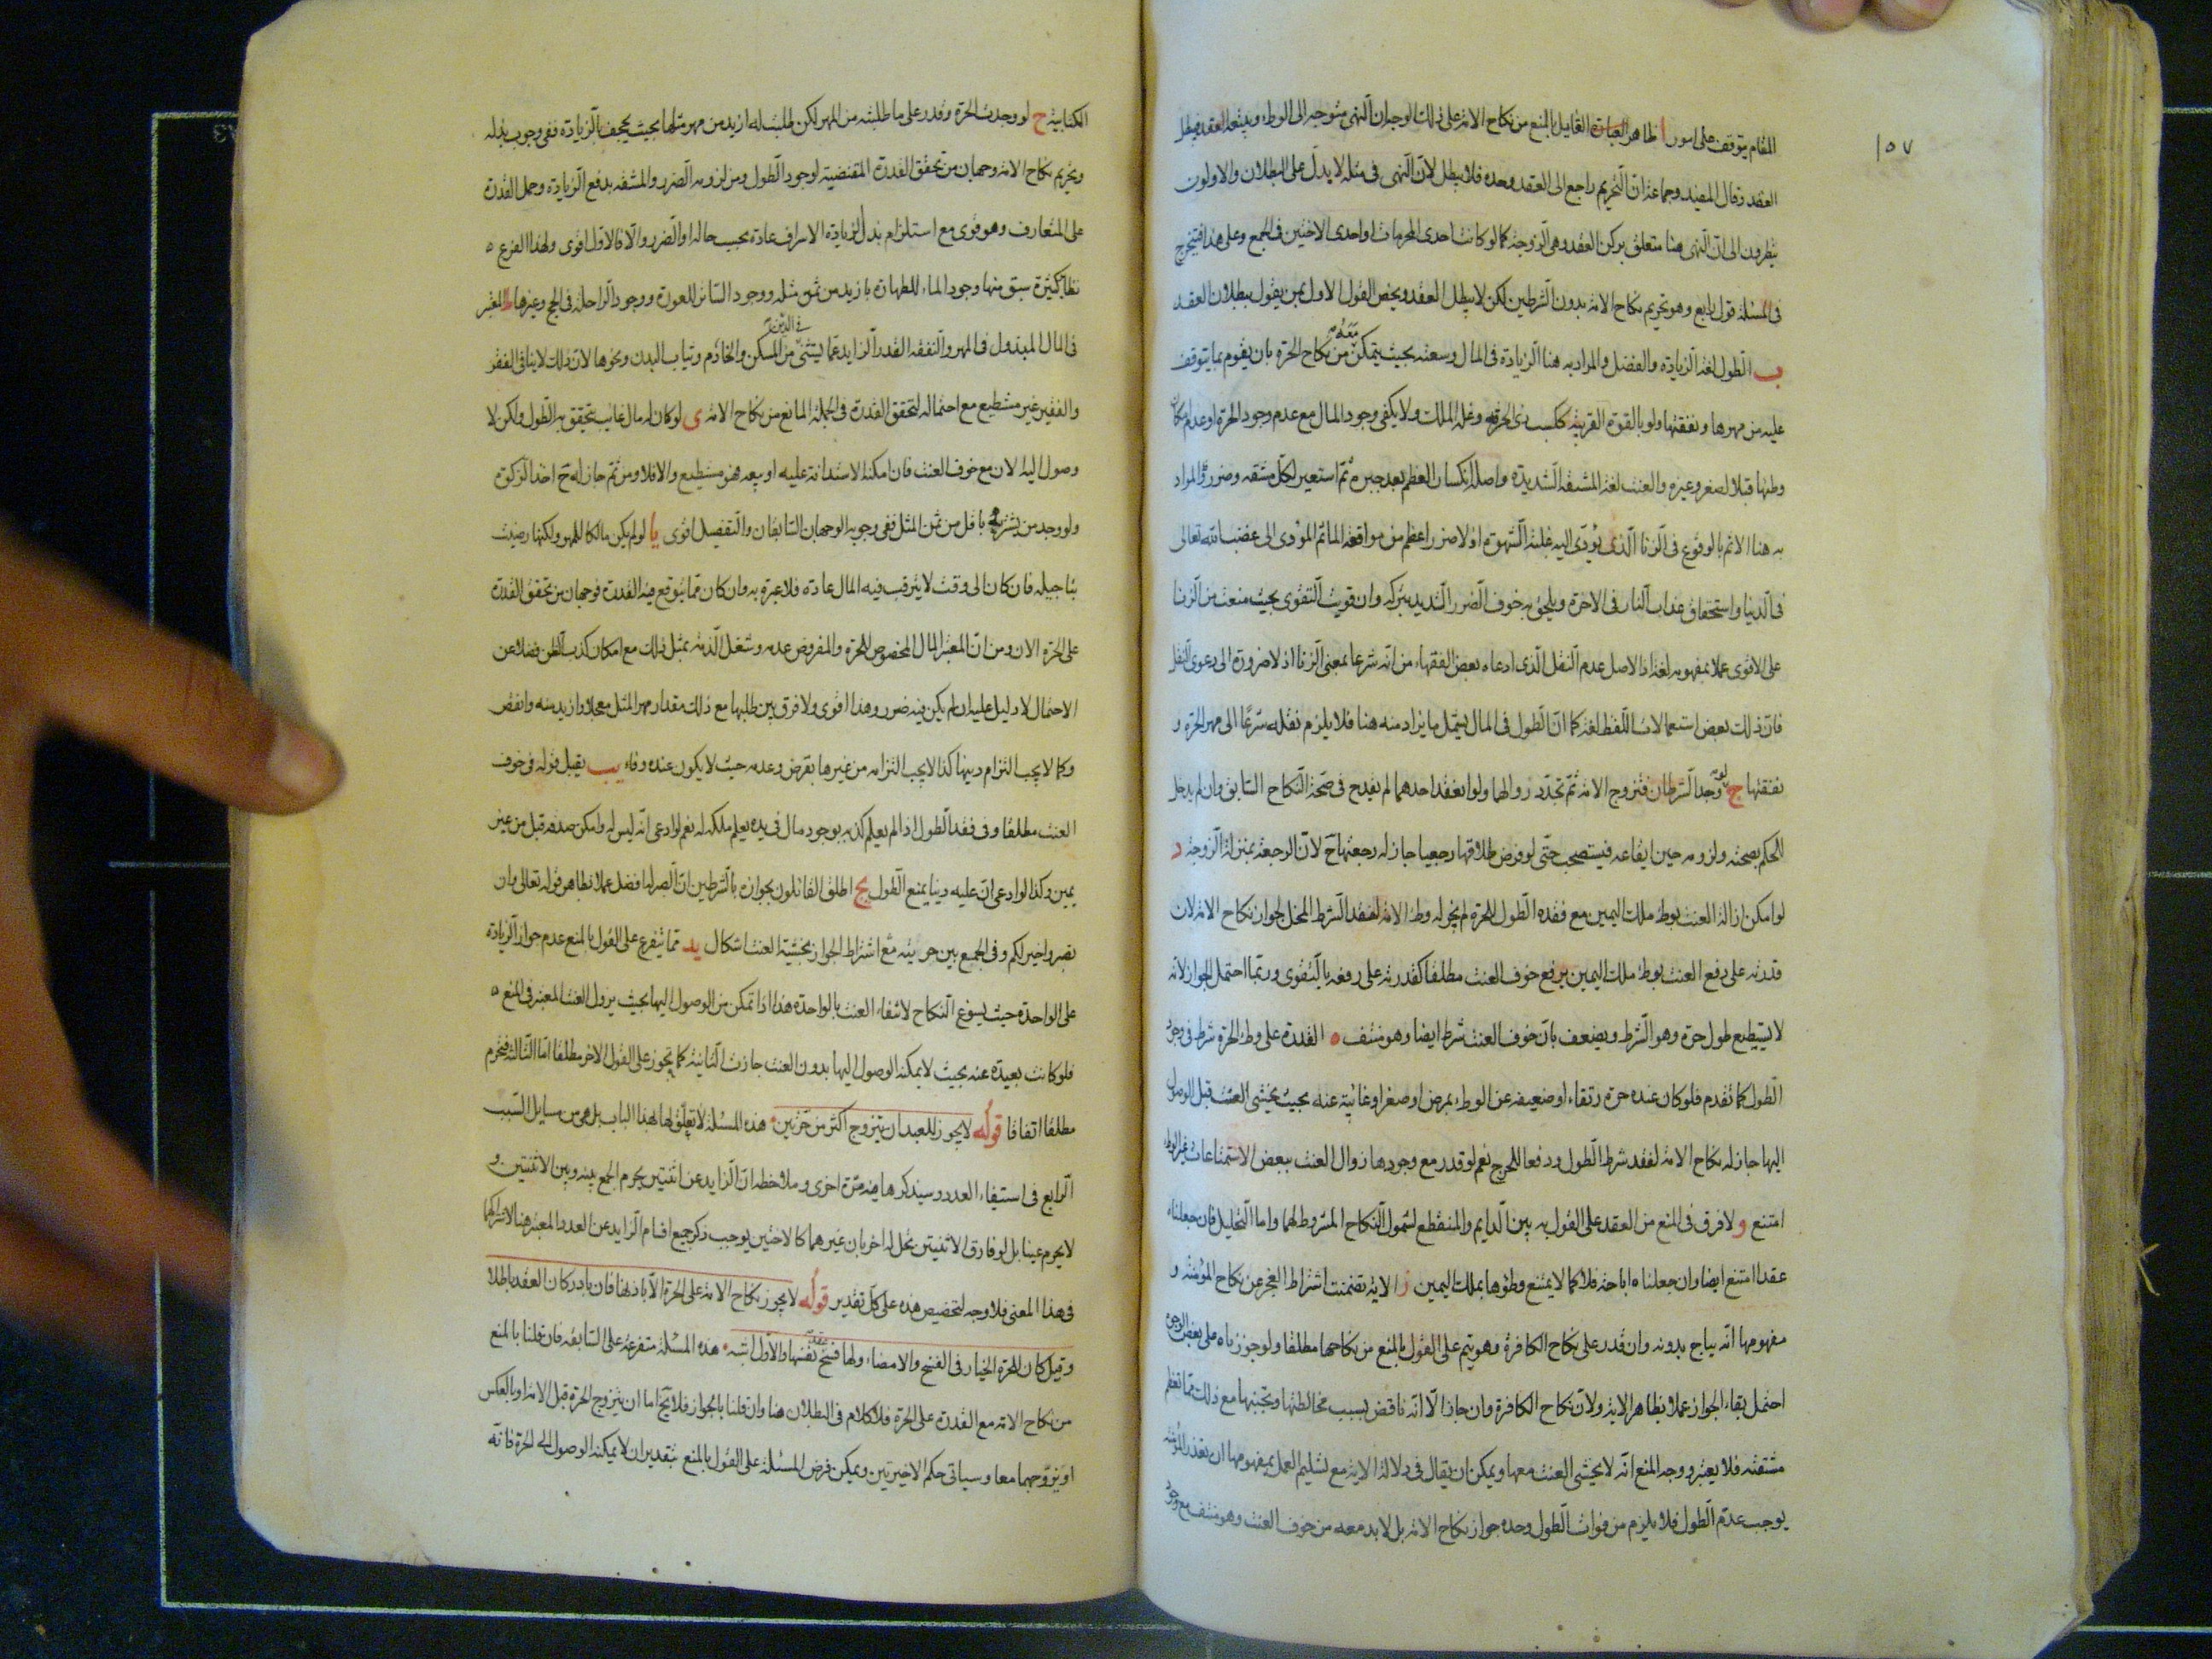 ١٥٧
المقام يتوقف على امور ا ظاهر العبارة القايل بالمنع من نكاح الامة على ذلك الوجه ان النهى متوجه الى الوطء ويتبعه العقد فيبطل
العقد وقال المفيد وجماعة ان التحريم راجع الى العقد وحده فلا يبطل لان النهى فى مثله لا يدل على البطلان والاولون
ينظرون الى ان النهى هنا متعلق بركن العقد وهى الزوجة كما لو كانت احدى المحرمات او احدى الاختين فى الجمع وعلى هذا فيتخرج
فى المسئلة قول رابع وهو تحريم نكاح الامة بدون الشرطين لكن لا يبطل العقد ويخص القول الاول بمن يقول ببطلان العقد
ب الطول لغة الزيادة والفضل والمراد به هنا الزيادة فى المال وسعته بحيث يتمكن معه من نكاح الحرة بان يقوم بما يتوقف
عليه من مهرها ونفقتها ولو بالقوة القريبة ككسب ذى الحرفة وغلة الملك ولا يكفى وجود المال مع عدم وجود الحرة او عدم امكان
وطئها قبلا لصغر وغيره والعنت لغة المشقة الشديدة واصله انكسار العظم بعد جبره ثم استعير لكل مشقة وضرر والمراد
به هنا الاثم بالوقوع فى الزنا الذى يؤدى اليه غلبة الشهوة اذ لا ضرر اعظم من مواقعة الماثم المؤدى الى غضب الله تعالى
فى الدنيا واستحقاق عذاب النار فى الاخرة ويلحق به خوف الضرر الشديد بتركه وان قويت التقوى بحيث منعت من الزنا
على الاقوى عملا بمفهومه لغة اذ الاصل عدم النقل الذى ادعاه بعض الفقهاء من انه شرعا بمعنى الزنا اذ لا ضرورة الى دعوى النقل
فان ذلك بعض استعمالات اللفظ لغة كما ان الطول فى المال يشمل ما يراد منه هنا فلا يلزم نقله شرعا الى مهر الحرة و
نفقتها ج لو وجد الشرطان فتزوج الامة ثم تجدد زوالهما ولو انفقد احدهما لم يقدح فى صحة النكاح السابق وان لم يدخل
للحكم بصحته ولزومه حين ايقاعه فيستصحب حتى لو فرض طلاقها رجعيا جاز له رجعتها ح لان الرجعة بمنزلة الزوجة د
لو امكن ازالة العنت بوطء ملك اليمين مع فقده الطول للحرة لم يجز له وطء الامة لفقد الشرط المخل لجواز نكاح الامة لان
قدرته على دفع العنت بوطء ملك اليمين يرفع خوف العنت مطلقا كقدرته على رفعه بالتقوى وربما احتمل الجواز لانه
لا يستطيع طول حرة وهو الشرط ويضعف بان خوف العنت شرط ايضا وهو منتف ه القدرة على وطء الحرة شرط فى وجود
الطول كما تقدم فلو كان عنده حرة رتقاء او ضعيفة عن الوطء بمرض او صغر او غائبة عنه بحيث يخشى العنت قبل الوصول
اليها جاز له نكاح الامة لفقد شرط الطول ودفعا للحرج نعم لو قدر مع وجودها زوال العنت ببعض الاستمتاعات غير الوطء
امتنع و لا فرق فى المنع من العقد على القول به بين الدايم والمنقطع لشمول النكاح المشروط لهما واما التحليل فان جعلناه
عقدا امتنع ايضا وان جعلناه اباحة فلا كما لا يمتنع وطؤها بملك اليمين ز الاية تضمنت اشتراط العجز عن نكاح المؤمنة و
مفهومها انه يباح بدونه وان قدر على نكاح الكافرة وهو يتم على القول بالمنع من نكاحها مطلقا ولو جوزناه على بعض الوجوه
احتمل بقاء الجواز عملا بظاهر الاية ولان نكاح الكافرة وان جاز الا انه ناقص بسبب مخالطتها وتجنبها مع ذلك مما تعظم
مشقته فلا يعتبر ووجه المنع انه لا يخشى العنت معها ويمكن ان يقال فى دلالة الاية مع تسليم العمل بمفهومها ان تعذر المؤمنة
يوجب عدم الطول فلا يلزم من فوات الطول وحده جواز نكاح الامة بل لابد معه من خوف العنت وهو منتف مع وجود
الكتابية ح لو وجدت الحرة وقدر على ما طلبته من المهر لكن طلبت له ازيد من مهر مثلها بحيث يجحف بالزيادة ففى وجوب بذله
وتحريم نكاح الامة وجهان من تحقق القدرة المقتضية لوجود الطول ومن لزومه الضرر والمشقة بدفع الزيادة وحمل القدرة
على المتعارف وهو قوى مع استلزام بذل الزيادة الاسراف عادة بحسب حاله او الضرر والا فالاول اقوى ولهذا الفرع
نظائر كثيرة سبق منها وجود الماء للطهارة بازيد من ثمن مثله ووجود الساتر للعورة ووجود الراحلة فى الحج وغيرها ط المعتبر
فى المال المبذول فى المهر والنفقة القدر الزايد عما يستثنى فى الدين من المسكن والخادم وثياب البدن ونحوها لان ذلك لا ينافى الفقر
والفقير غير مستطيع مع احتماله لتحقق القدرة فى الجملة المانع من نكاح الامة ى لو كان له مال غايب يتحقق به الطول ولكن لا
وصول اليه الان مع خوف العنت فان امكنه الاستدانة عليه او بيعه فهو مستطيع والا فلا ومن ثم جاز له ح اخذ الزكوة
ولو وجد من يشتريه باقل من ثمن المثل ففى وجوبه الوجهان السابقان والتفصيل اقوى يا لو لم يكن مالكا للمهر ولكنها رضيت
بتاجيله فان كان الى وقت لا يترقب فيه المال عادة فلا عبرة به وان كان مما يتوقع فيه القدرة فوجهان من تحقق القدرة
على الحرة الان ومن ان المعتبر المال المخصوص للحرة والمفروض عدمه وشغل الذمة بمثل ذلك مع امكان كذب الظن فضلا عن
الاحتمال لا دليل عليه ان لم يكن فيه ضرر وهذا اقوى ولا فرق بين طلبها مع ذلك مقدار مهر المثل معجلا وازيد منه وانقص
وكما لا يجب التزام دينها كذا لا يجب التزامه من غيرها بقرض وعدمه حيث لا يكون عنده وفاء يب يقبل قوله فى خوف
العنت مطلقا وفى فقد الطول اذا لم يعلم كذبه بوجود مال فى يده يعلم ملكه له نعم لو ادعى انه ليس له وامكن صدقه قبل من غير
يمين وكذا لو ادعى ان عليه دينا يمنع الطول يج اطلق القائلون بجوازه بالشرطين ان الصبر له افضل عملا بظاهر قوله تعالى وان
تصبروا خير لكم وفى الجمع بين خيريته مع اشتراط الجواز بخشية العنت اشكال يد مما يتفرع على القول بالمنع عدم جواز الزيادة
على الواحدة حيث يسوغ النكاح لانتفاء العنت بالواحدة هذا اذا تمكن من الوصول اليها بحيث يزول العنت المعتبر فى المنع
فلو كانت بعيدة عنه بحيث لا يمكنه الوصول اليها بدون العنت جازت الثانية كما يجوز على القول الاخر مطلقا اما الثالثة فتحرم
مطلقا اتفاقا قوله لا يجوز للعبد ان يتزوج اكثر من حرتين هذه المسئلة لا تعلق لها بهذا الباب بل هى من مسايل السبب
الرابع فى استيفاء العدد وسيذكرها فيه مرة اخرى وملاحظة ان الزايد عن اثنتين يحرم الجمع بينه وبين الاثنتين و
لا يحرم عينا بل لو فارق الاثنتين تحل له اخريان غيرهما كالاختين يوجب ذكر جميع اقسام الزايد عن العدد المعتبر هنا لاشتراكها
فى هذا المعنى فلا وجه لتخصيص هذه على كل تقدير قوله لا يجوز نكاح الامة على الحرة الا باذنها فان بادر كان العقد باطلا
وقيل كان للحرة الخيار فى الفسخ والامضاء ولها فسخ عقد نفسها والاول اشبه هذه المسئلة متفرعة على السابقة فان قلنا بالمنع
من نكاح الامة مع القدرة على الحرة فلا كلام فى البطلان هنا وان قلنا بالجواز فلا يخ اما ان يتزوج الحرة قبل الامة او بالعكس
او يتزوجهما معا وسياتى حكم الاخيرتين ويمكن فرض المسئلة على القول بالمنع بتقدير ان لا يمكنه الوصول الى الحرة فانه